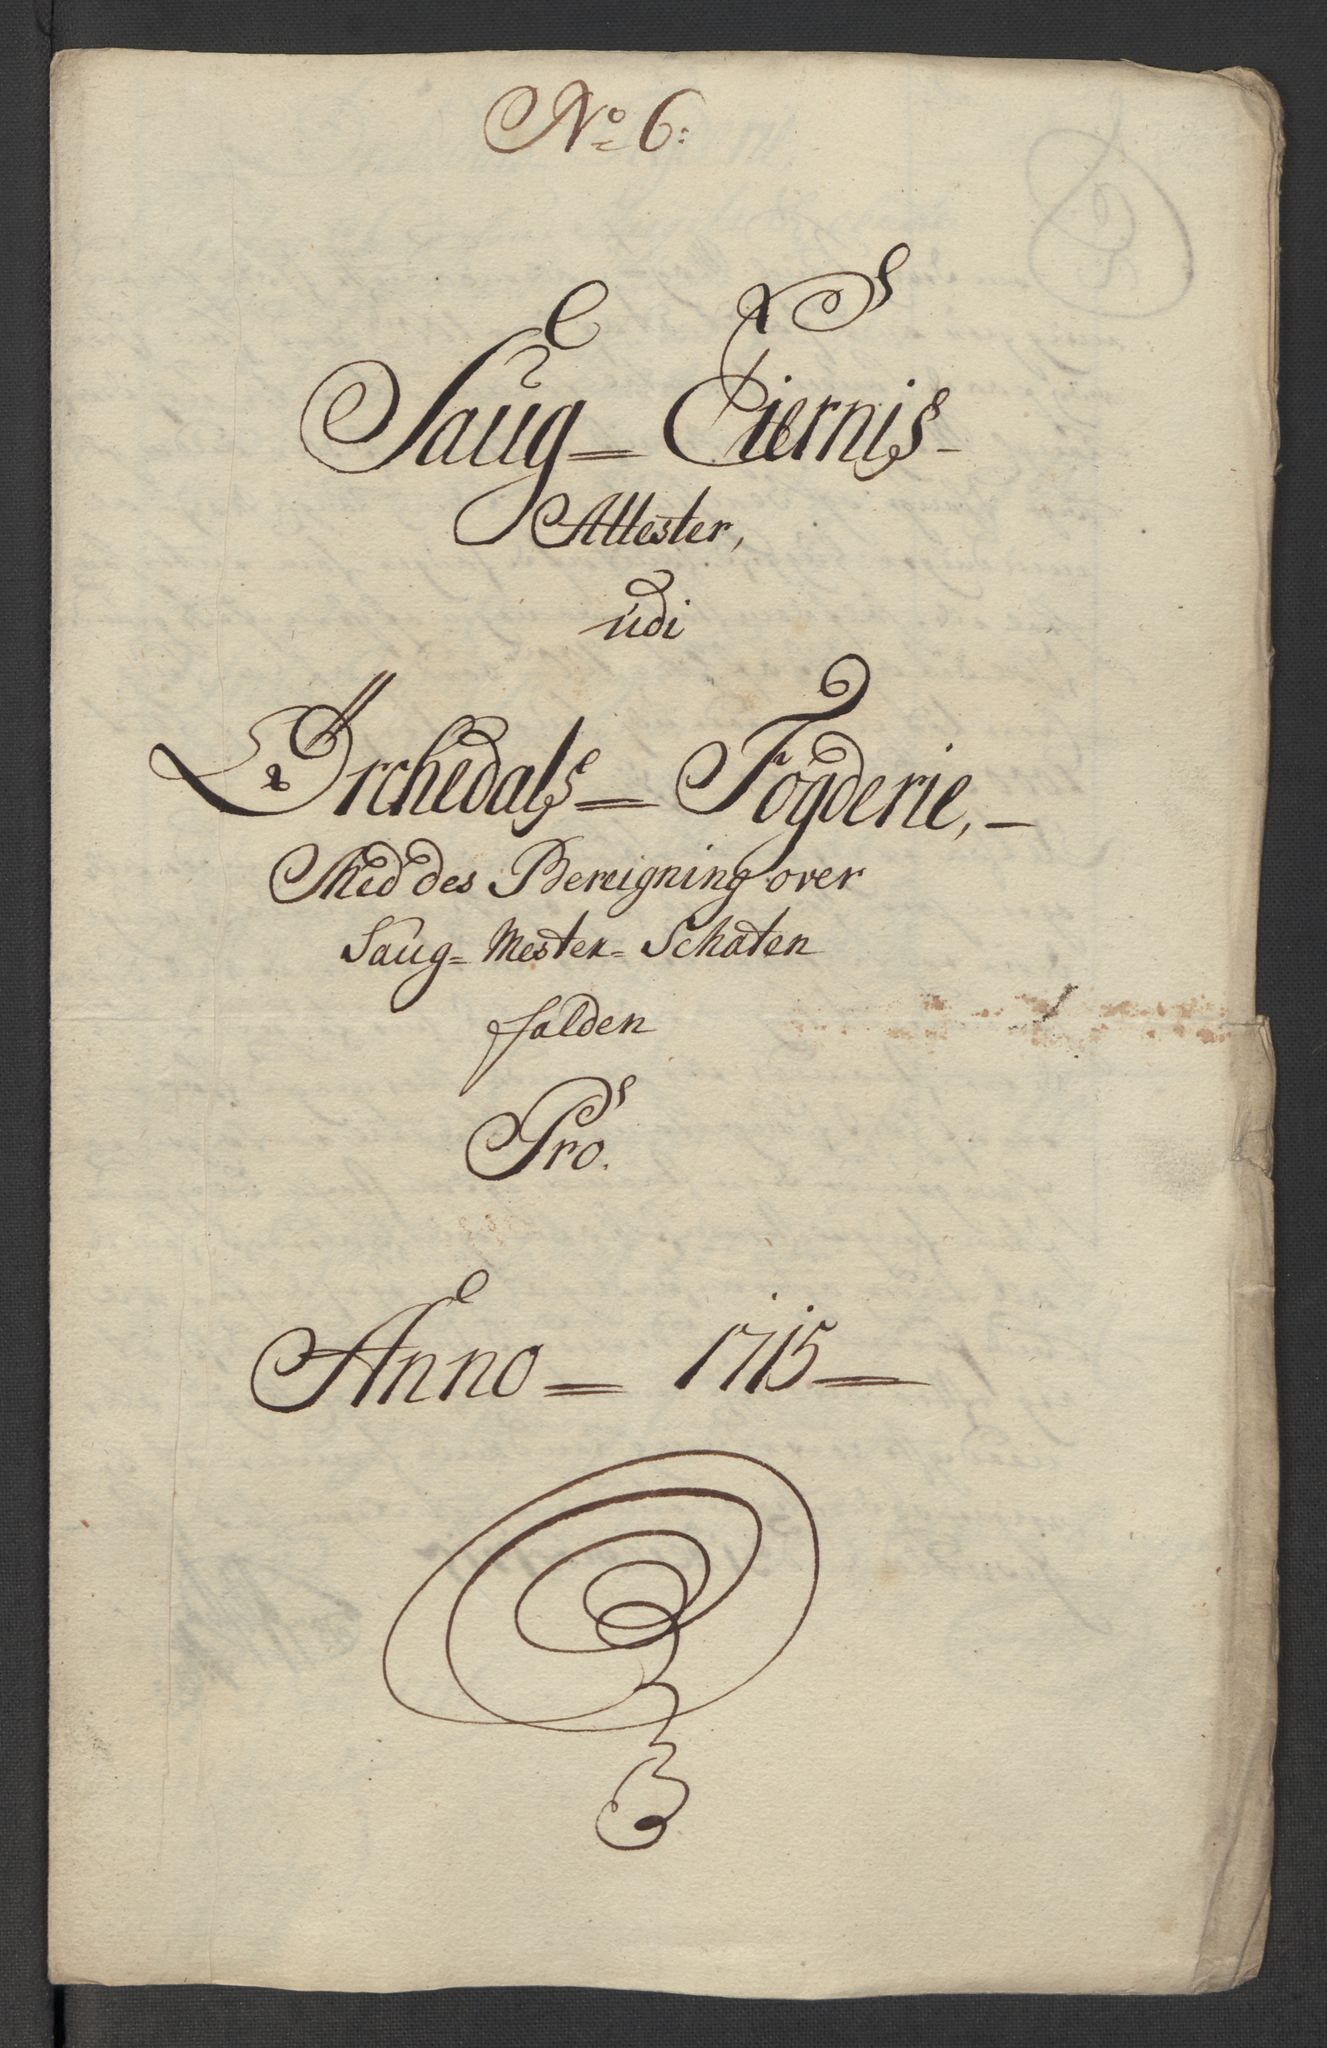 No 6:
Saug= Eiernis=
Attester,
udi
Ørchedals= Fogderie,
Med des Bereigning over
Saug= Mester= Schaten
falden
Pro.
Anno= 1715=